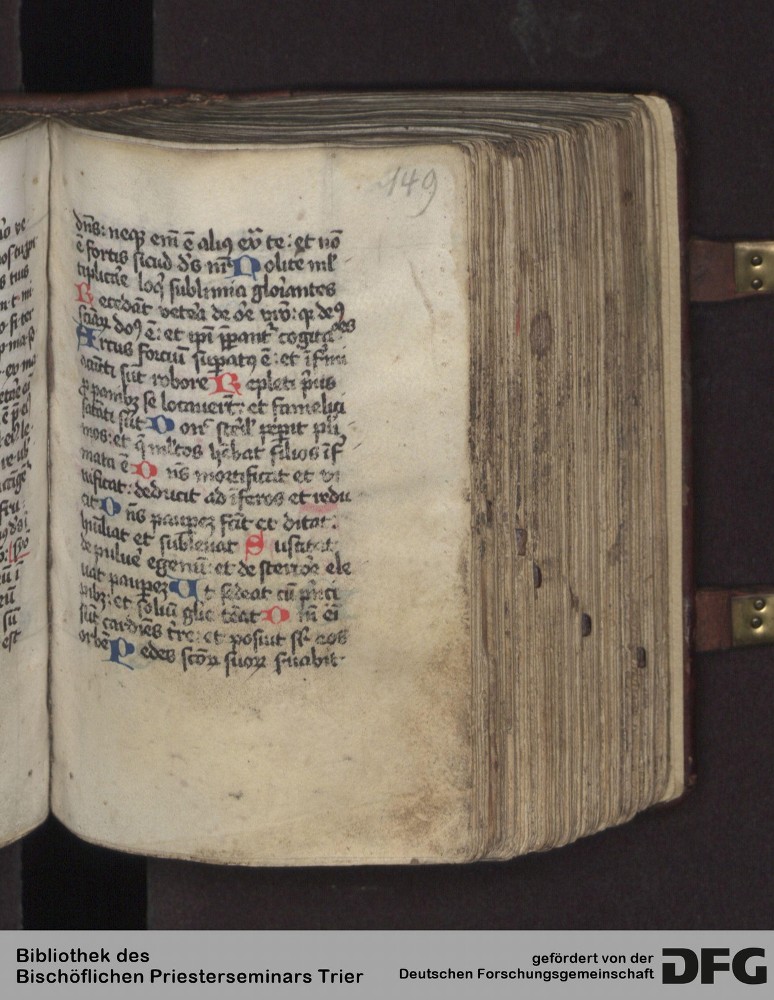 149
dn̄s: neqꝫ em̄ ē aliꝰ ex̄ te: et nō
ē fortis sicud ds̄ nr̄ Nolite ml̓
tiplicare loqͥ sublimia gloriantes
Recedāt vetera de oꝛe vr̄o: qꝛ deꝰ
sciāꝝ dn̄s ē: et ipī p̄parant͛ cogitacōes
Arcus forciū suꝑatꝰ ē: et īfirmi
accīti sūt robore Repleti pͥus
ꝓ panibꝫ se locauerūt: et famelici
saciati sūt Donec ster̓il peꝑit pl̄i
mos: et q̄ ml̓tos hēbat filios īf
mata ē Dn̄s mortificat et vi
uificat: deducit ad īferos et redu
cit Dn̄s pauꝑeꝫ fac̄it et ditat:
hūiliat et subleuat Suscitat
de puluere egenū: et de stercoꝛe ele
uat pauꝑeꝫ Ut sedeat cū pͥnci
pibꝫ: et soliū glīe teneat Dn̄i em̄
sūt cardines tr̄e: et posuit sr̄ eos
orbē Pedes scōꝝ suoꝝ s̓uabit
Bibliothek des
Bischöflichen Priesterseminars Trier
gefördert von der
Deutschen Forschungsgemeinschaft
DFG